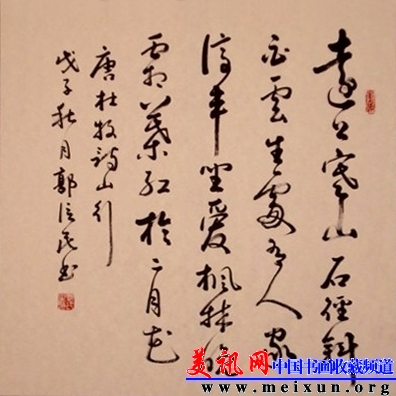 遠上寒山石徑斜
白雲生處有人家
停車坐愛楓林晚
霜葉紅於二月花
唐杜牧詩山行
戊子秋月郭信民书
美讯网中国书画收藏频道
www.meixun.org